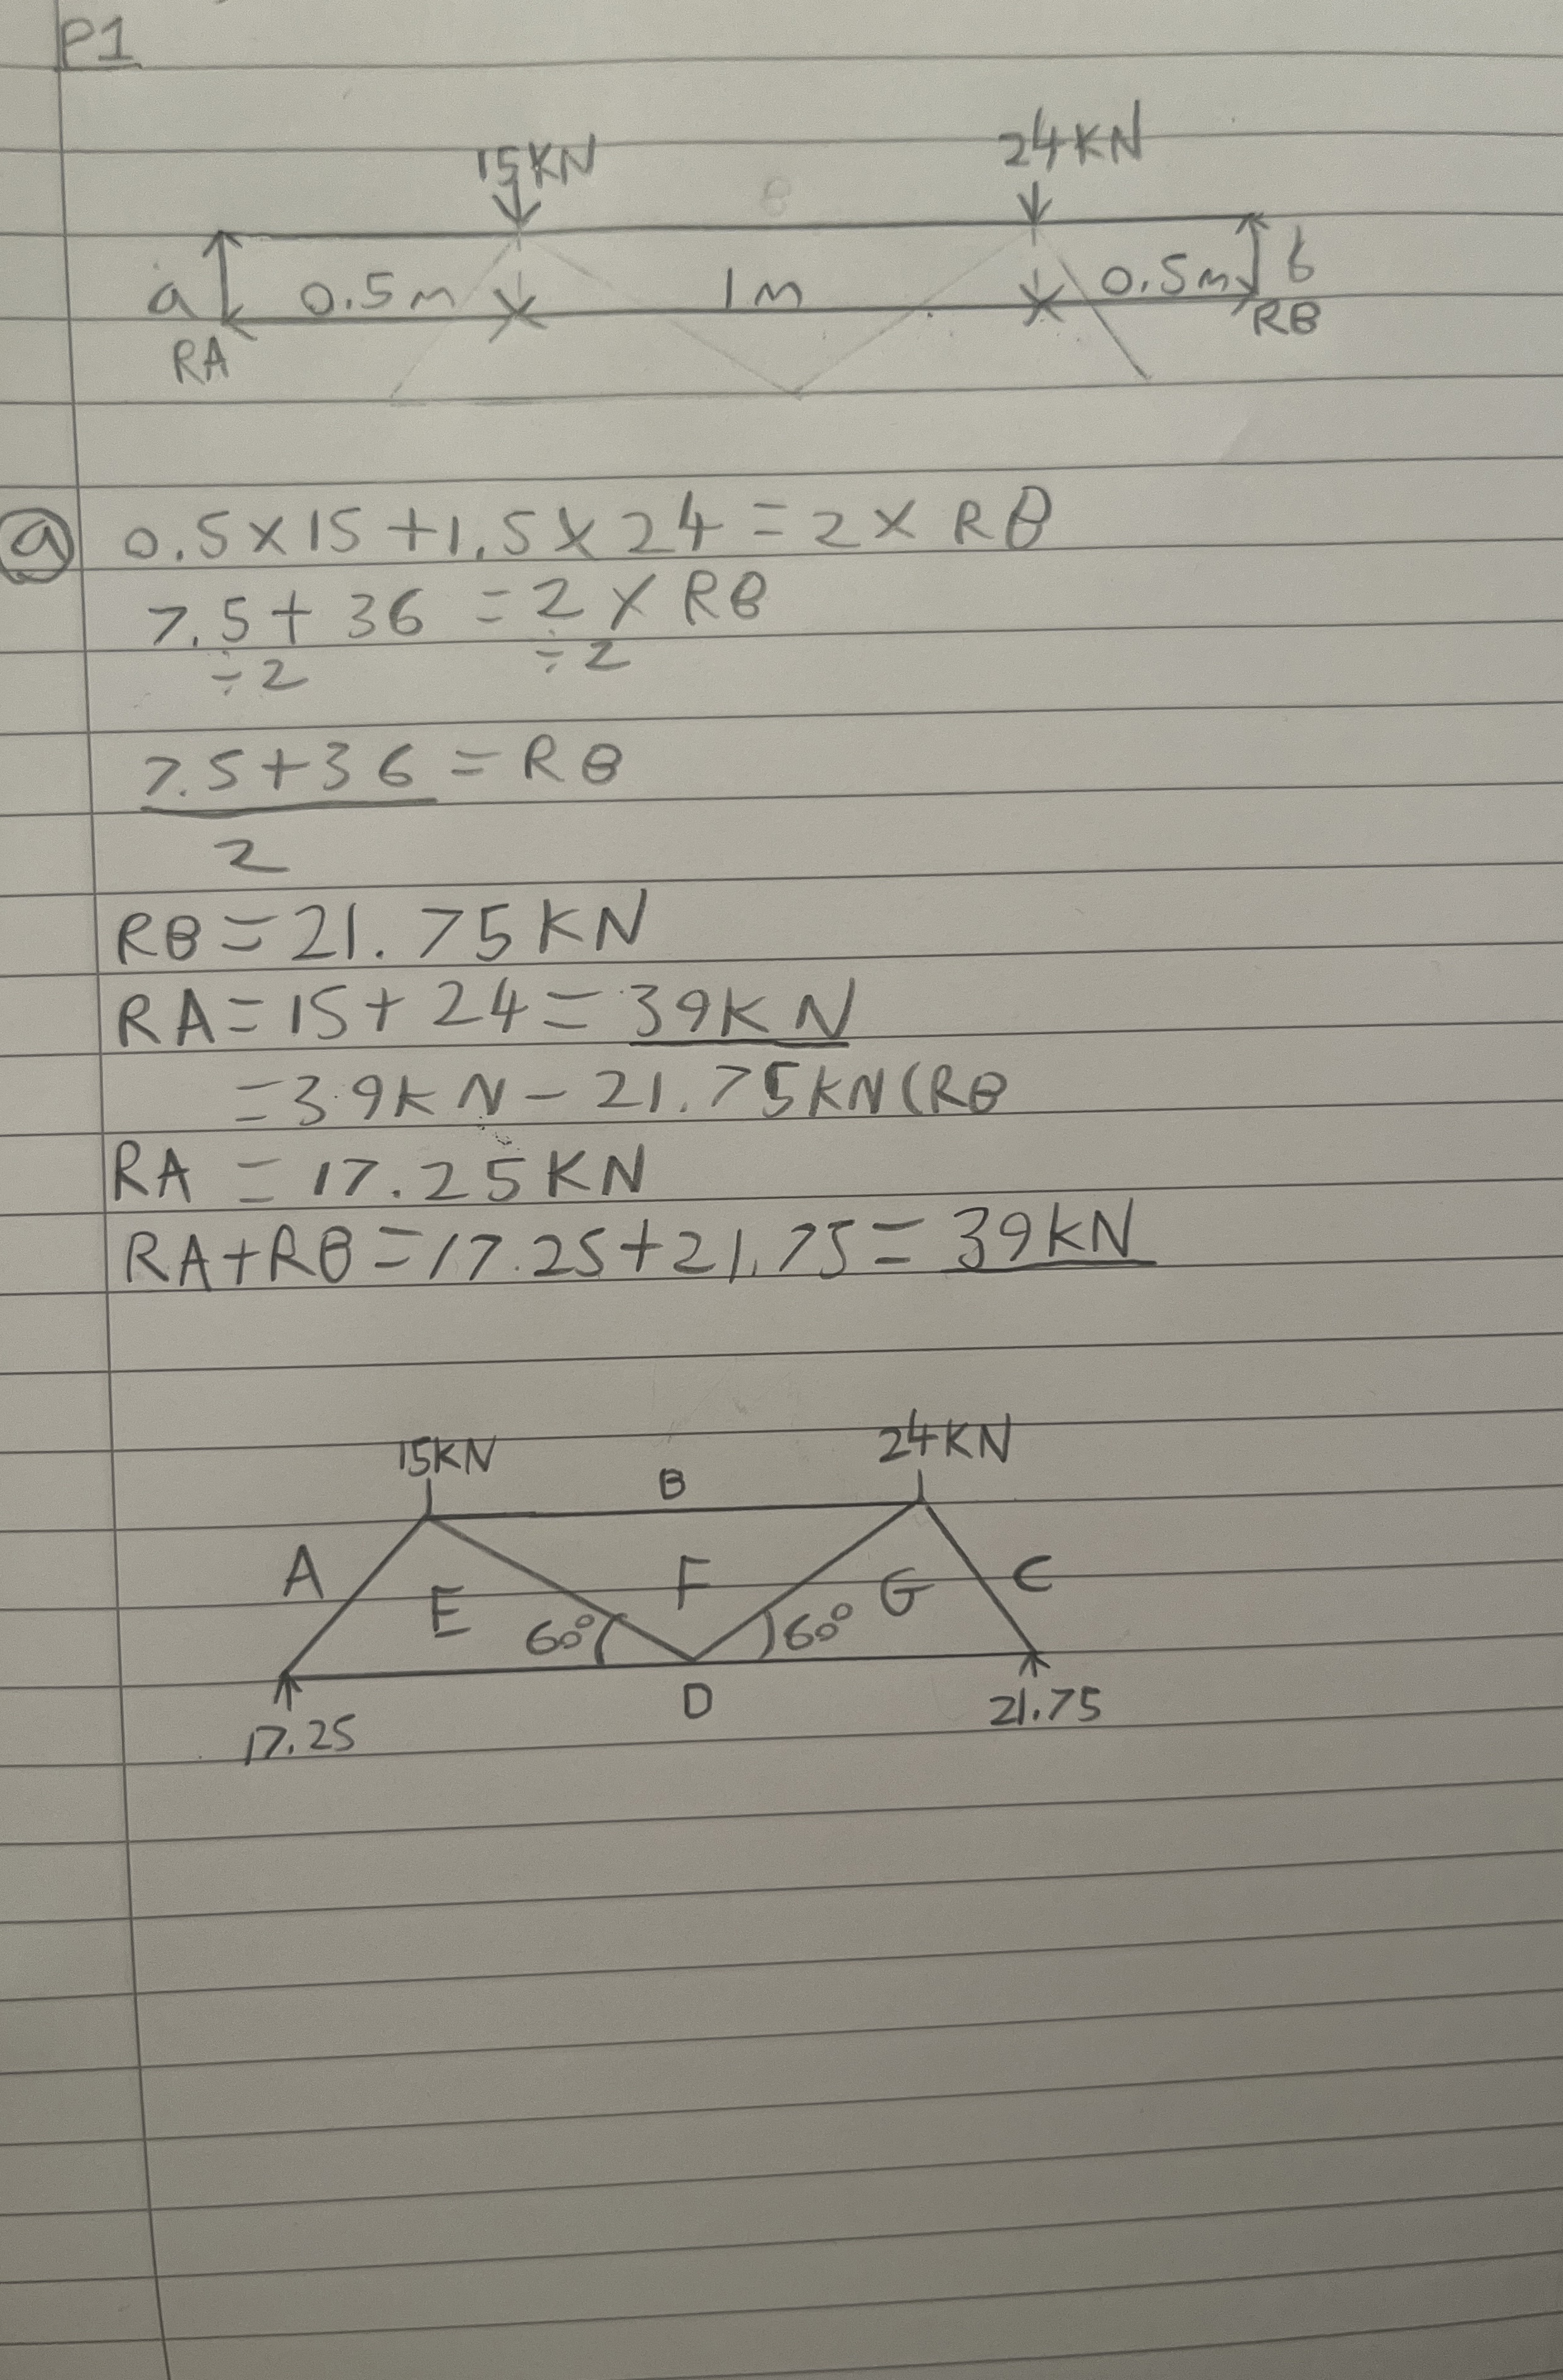 P1
15KN
24KN
8
a
0.5m
1m
0.5m
b
RA
RB
a 0.5×15+1.5×24=2×RB
7.5+36=2×RB
÷2 ÷2
7.5+36=RB
2
RB=21.75KN
RA=15+24=39KN
=39KN-21.75KN(RB
RA=17.25KN
RA+RB=17.25+21.75=39KN
15KN
24KN
B
A
E
F
G
C
60°
60°
D
17.25
21.75